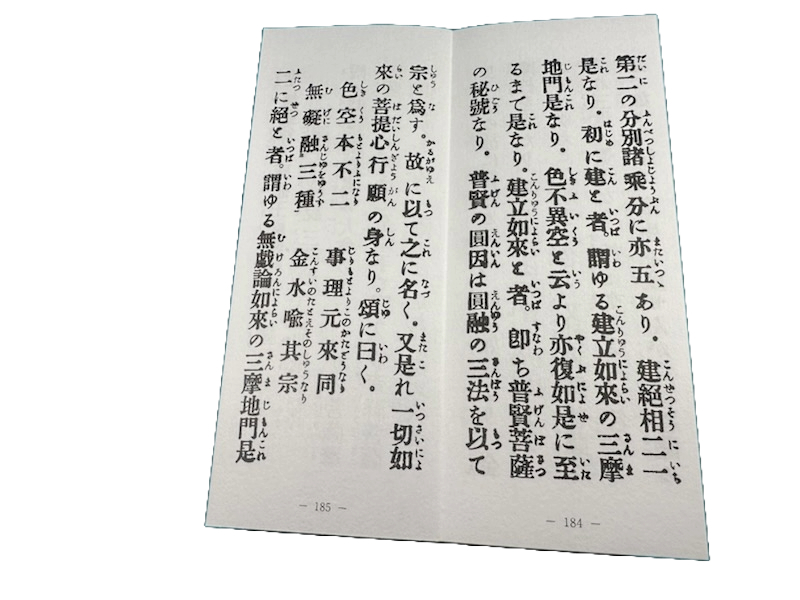 第二の分別諸乘分に亦五あり。建絕相二一
是なり。初に建と者。謂ゆる建立如來の三摩
地門是なり。色不異空と云より亦復如是に至
るまで是なり。建立如來と者。卽ち普賢菩薩
の秘號なり。普賢の圓因は圓融の三法を以て
— 184 —
宗と爲す。故に以て之に名く。又是れ一切如
來の菩提心行願の身なり。頌に曰く。
色空本不二 事理元來同
無礙融三種 金水喩其宗
二に絕と者。謂ゆる無戲論如來の三摩地門是
— 185 —